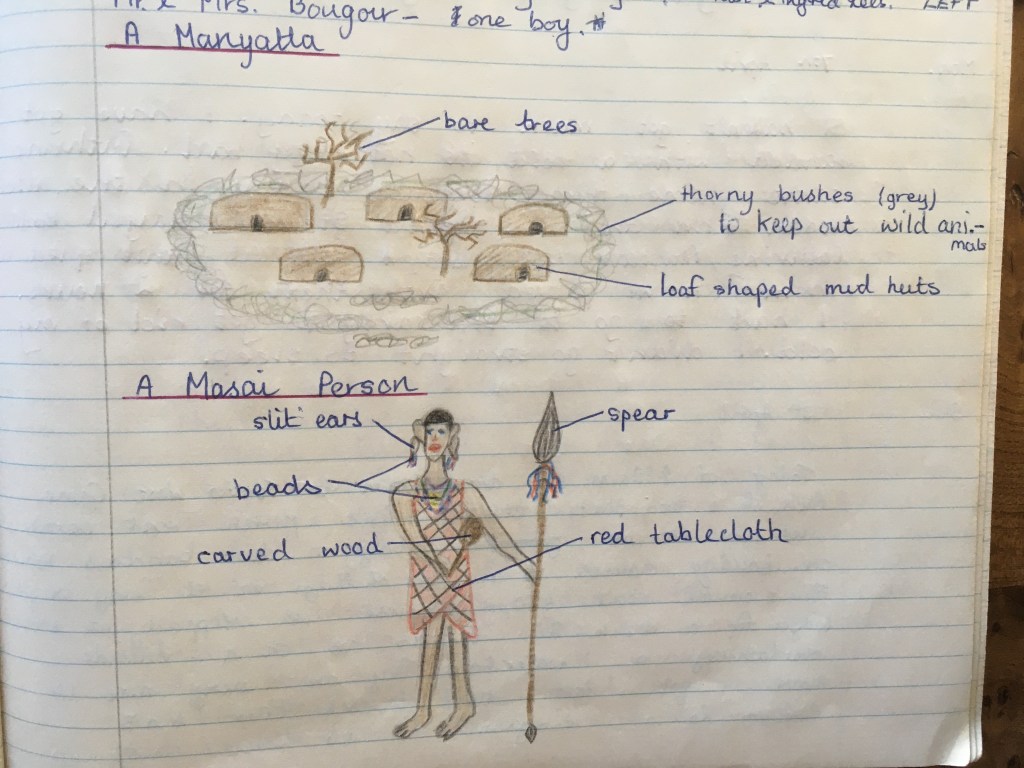 Mr. & Mrs. Bougour - one boy.
LEFT
A Manyatta
bare trees
thorny bushes (grey)
to keep out wild ani-
mals
loaf shaped mud huts
A Masai Person
slit ears
spear
beads
carved wood
red tablecloth